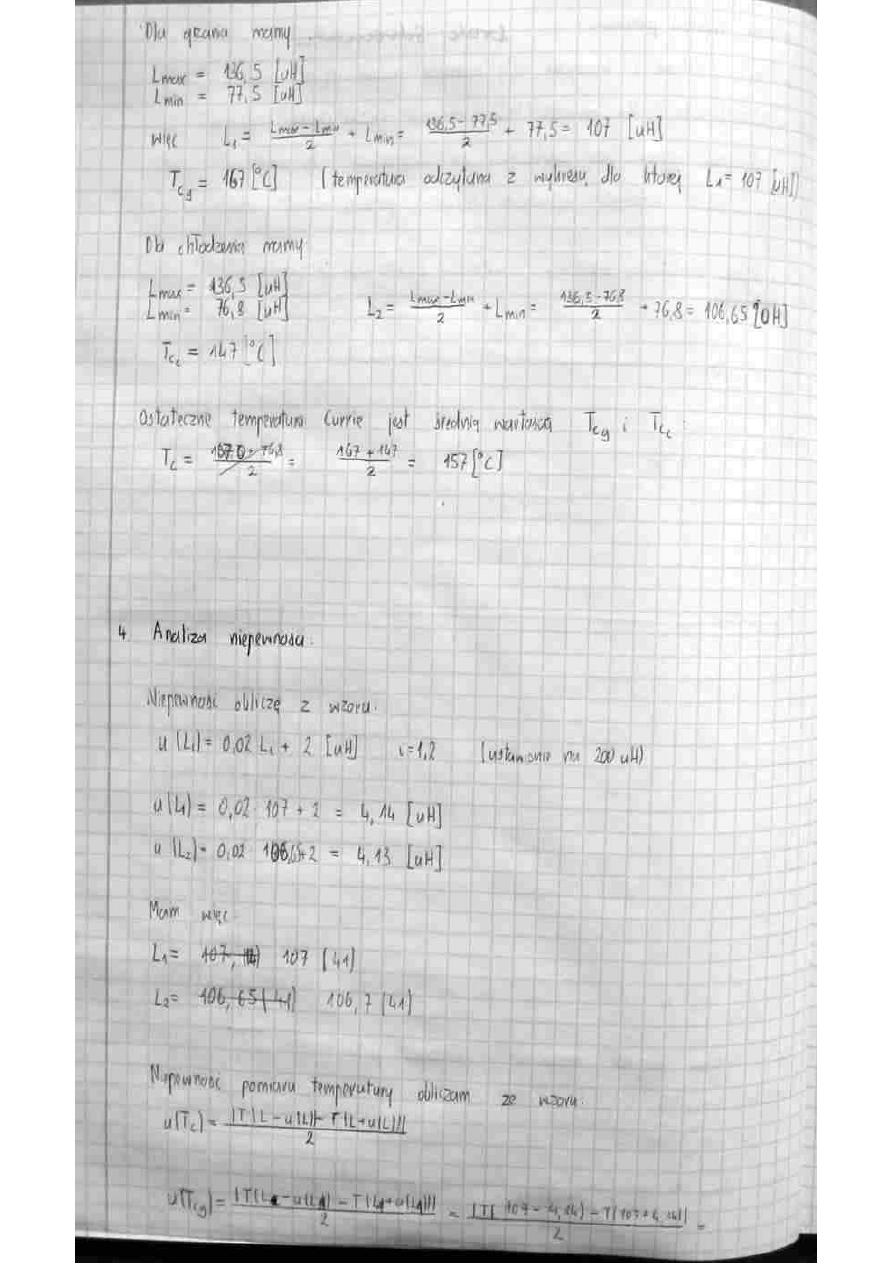 Dla grzania mamy.
Lmax = 136,5 [uH]
Lmin = 77,5 [uH]
więc L1 = (Lmax - Lmin)/2 + Lmin = (136,5 - 77,5)/2 + 77,5 = 107 [uH]
Tcg = 167 [°C] (temperatura odczytana z wykresu, dla której L1 = 107 [uH])
Dla chłodzenia mamy
Lmax = 136,5 [uH]
Lmin = 76,8 [uH]
L2 = (Lmax - Lmin)/2 + Lmin = (136,5 - 76,8)/2 + 76,8 = 106,65 [uH]
Tcc = 147 [°C]
Ostateczne temperatura Currie jest średnią wartością Tcg i Tcc:
Tc = = (167 + 147)/2 = 157 [°C]
4. Analiza niepewności.
Niepewność obliczę z wzoru.
u(Li) = 0,02 Li + 2 [uH] i=1,2 (ustawione na 200 uH)
u(L1) = 0,02 · 107 + 2 = 4,14 [uH]
u(L2) = 0,02 · 106,65+2 = 4,13 [uH]
Mam więc
L1 = 107 (41)
L2 = 106,7 (41)
Niepewność pomiaru temperatury obliczam ze wzoru.
u(Tc) = |T(L - u(L)) - T(L + u(L))|/2
u(Tcg) = |T(L1 - u(L1)) - T(L1 + u(L1))|/2 = |T(107 - 4,14) - T(107 + 4,14)|/2 =